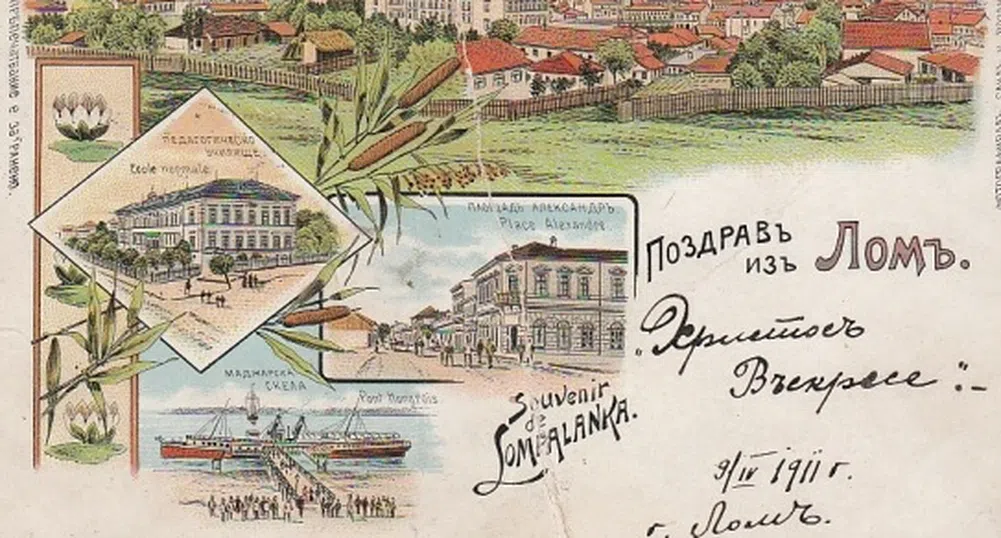 ПЕДАГОГИЧЕСКО
УЧИЛИЩЕ.
Ecole normale.
ПЛОЩАДЬ АЛЕКСАНДРЪ.
Place Alexandre.
МАДЖАРСКА
СКЕЛА
Pont Hongrois
Souvenir
de
LOMPALANKA.
ПОЗДРАВЪ
ИЗЪ ЛОМЪ.
„Христосъ
Въскресе“.-
9/IV 1911 г.
г. Ломъ.